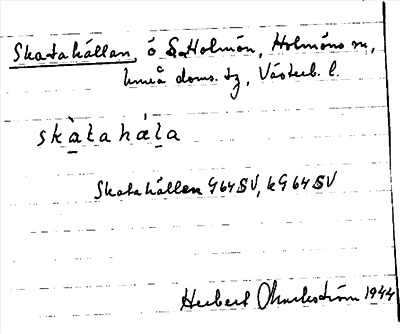 Skatahällan, ö S. Holmön, Holmöns sn,
Umeå doms. tg, Västerb. l.
skàtahál̲a
Skatahällen G64SV, kG64SV
Herbert 1944